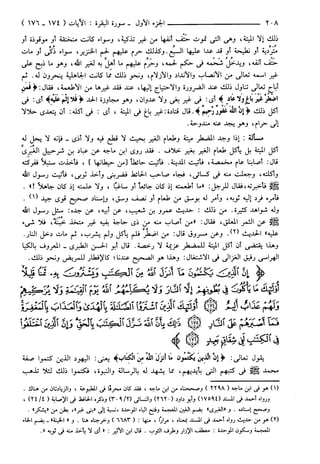 ٢٠٨ الجزء الأول ـ سورة البقرة : الآيات (١٧٤ ـ ١٧٦)
ذلك إلا الميتة، وهي التي تموت حَتْف أنفها من غير تذكية، وسواء كانت منخنقة أو موقوذة أو
مُتَرَدية أو نطيحة أو قد عدا عليها السبُع. وكذلك حرم عليهم لحم الخنزير، سواء ذُكي أو مات
حَتْف أنفه، ويدخُل شَحْمه في حكم لحمه، وحرّم عليهم ما أُهِلَّ به لغير الله، وهو ما ذبح على
غير اسمه تعالى من الأنصاب والأنداد والأزلام، ونحو ذلك مما كانت الجاهلية ينحرون له. ثم
أباح تعالى تناول ذلك عند الضرورة والاحتياج إليها، عند فقد غيرها من الأطعمة، فقال: ﴿فمن
اضطر غير باغ ولا عاد﴾ أي: في غير بغي ولا عدوان، وهو مجاوزة الحد ﴿فلا إثم عليه﴾ أي: في
أكل ذلك ﴿إن الله غفور رحيم﴾ قال قتادة: غير باغ في الميتة، أي: في أكله: أن يتعدى حلالا
إلى حرام، وهو يجد عنه مندوحة.
مسألة: إذا وجد المضطر ميتة وطعام الغير بحيث لا قطع فيه ولا أذى ـ فإنه لا يحل له
أكل الميتة بل يأكل طعام الغير بغير خلاف. فقد روى ابن ماجه عن عباد بن شرحبيل الغُبَريّ
قال: أصابنا عام مخمصة، فأتيت المدينة. فأتيت حائطاً [من حيطانها]، فأخذت سنبلاً ففركته
وأكلته، وجعلت منه في كسائي، فجاء صاحب الحائط فضربني وأخذ ثوبي، فأتيت رسول الله
ﷺ فأخبرته، فقال للرجل: «ما أطعمته إذ كان جائعاً أو ساغباً، ولا علمته إذ كان جاهلاً».
فأمره فرد إليه ثوبه، وأمر له بوسق من طعام أو نصف وسق، وإسناده صحيح قوي جيد (١).
وله شواهد كثيرة. من ذلك: حديث عمرو بن شعيب، عن أبيه، عن جده: سئل رسول الله
ﷺ عن الثمر المعلق، فقال: «من أصاب منه من ذي حاجة بفيه غير متخذ خُبْنَةً، فلا شيء
عليه» الحديث (٢). وعن مسروق قال: من اضطر فلم يأكل ولم يشرب، ثم مات دخل النار.
وهذا يقتضي أن أكل الميتة للمضطر عزيمة لا رخصة. قال أبو الحسن الطبري ـ المعروف بالكيا
الهراسي رفيق الغزالي في الاشتغال: وهذا هو الصحيح عندنا؛ كالإفطار للمريض ونحو ذلك.
﴿إن الذين يكتمون ما أنزل الله من الكتاب ويشترون به ثمنا قليلا أولئك ما
يأكلون في بطونهم إلا النار ولا يكلمهم الله يوم القيامة ولا يزكيهم
ولهم عذاب أليم أولئك الذين اشتروا الضلالة بالهدى والعذاب بالمغفرة
فما أصبرهم على النار ذلك بأن الله نزل الكتاب بالحق وإن الذين اختلفوا
في الكتاب لفي شقاق بعيد﴾
يقول تعالى: ﴿إن الذين يكتمون ما أنزل الله من الكتاب﴾ يعني: اليهود الذين كتموا صفة
محمد ﷺ في كتبهم التي بأيديهم، مما يشهد له بالرسالة والنبوة، فكتموا ذلك لئلا تذهب
(١) هو في ابن ماجه (٢٢٩٨) وصححناه من ابن ماجه، فقد كان محرفًا في المطبوعة، والزيادتان من هناك.
ورواه أحمد في المسند (١٧٥٩٤) وأبو داود (٢٦٢٠) والنسائي (٣٠٩/٢) وذكره الحافظ في الإصابة (٢٤/٤)،
وصحح إسناده. و«الغبري» بضم الغين المعجمة وفتح الباء الموحدة، نسبة إلى «بني غبر»، بطن من «يشكر».
(٢) هو من حديث رواه أحمد في المسند بمعناه، مرارًا، منها: (٦٦٨٣) وخرجناه هنا. و«الخبنة» ـ بضم الخاء
المعجمة وسكون الموحدة: معطف الإزار وطرف الثوب. قال ابن الأثير: «أي لا يأخذ منه في ثوبه».